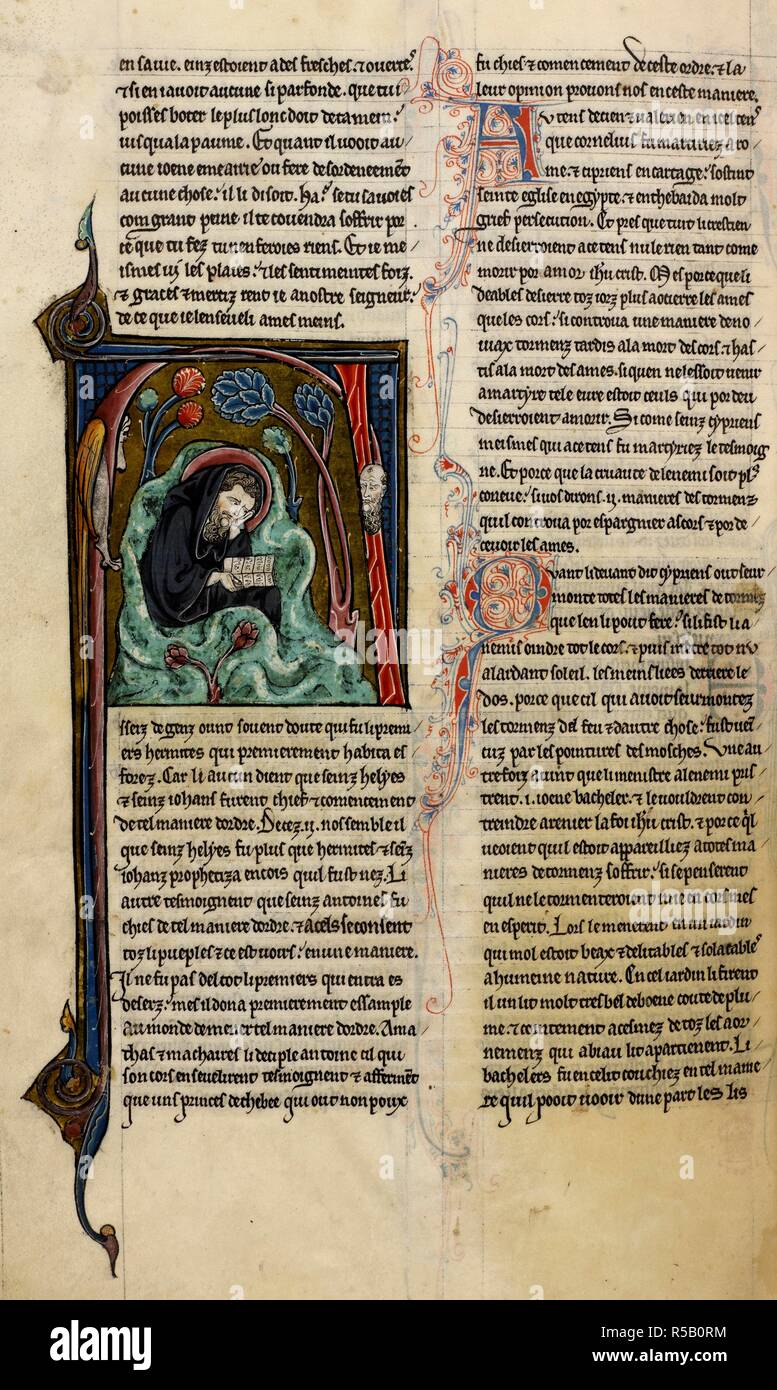 en sa uie. einz estoient ades fresches. ⁊ ouertes
⁊ si en i auoit aucune si parfonde. que tu i
pousses boter le plus lonc doit de ta mein.
iusqua la paume. Et quant il uooit au/
cune ioene en eaurie ou fere desordeneemēt
aucune chose. il li disoit. ha. se tu sauoies
com grant peine il te couendra soffrir por
ce que tu fez tu nen feroies riens. Et ie me/
ismes ui les plaies. ⁊ les sentimentes foiz.
⁊ graces ⁊ merciz rent ie a nostre seigneur.
de ce que ie lenseueli a mes meins.
A
sseiz de genz ount souent doute qui fu li premi/
ers hermites qui premierement habita es
forez. Car li aucun dient que seinz helyes
⁊ seinz iohans furent chief ⁊ comencement
de tel maniere dordre. De cez .ij. nos semble il
que seinz helyes fu plus que hermites ⁊ seīz
iohanz prophetiza encois quil fust nez. Li
autre tesmoignent que seinz antoines fu
chies de tel maniere dordre. ⁊ a cels se consent
toz li pueples ⁊ ce est uoirs. en une maniere.
Il ne fu pas del tot li premiers qui entra es
deserz. mes il dona premierement essample
au monde de mener tel maniere dordre. Ama/
thas ⁊ machaires li deciple antoine cil qui
son cors enseuelirent tesmoignent ⁊ affermēt
que uns princes de thebee qui out non poux
fu chies ⁊ comencement de ceste ordre. ⁊ la
leur opinion prouons nos en ceste maniere.
Au tens decien ⁊ ualerien en icel tens
que cornelius fu martiriez a ro/
me. ⁊ cipriens en cartage. sostint
seinte eglise en egypte. ⁊ en thebaida molt
grief persecution. Et pres que tuit li crestien
ne desierroient a ce tens nule rien tant come
morir por amor ihū crist. Mes por ce que li
deables desierre toz iorz plus a ocierre les ames
que les cors. si controua une maniere de no/
uiax tormenz tardis a la mort des cors. ⁊ has/
tis a la mort des ames. si quen nel essoit uenir
a martyre tele eure estoit ceuls qui por deu
desierroient a morir. Si come seinz cypriens
meismes qui a ce tens fu martyriez le tesmoig
ne. Et por ce que la cruaute de lenemi soit pls
coneue. si uos dirons .ij. manieres des tormenz
quil controua por espargnier as cors ⁊ por de/
ceuoir les ames.
Quant li deuant dit cypriens out seur
monte totes les manieres de tormēz
que len li pout fere. si li fist li a
nemis oindre tot le cors. ⁊ puis metre tot nu
al ardant soleil. les meins liees derriere le
dos. por ce que cil qui auoit seurmontez
les tormenz del feu ⁊ dautre chose. fust uen
cuz par les pointures des mosches. Une au/
tre foiz auint que li menistre a lenemi pris
trent .i. ioene bacheler. ⁊ le uouldrent con/
treindre a renier la foi ihū crist. ⁊ por ce ql
ueoient quil estoit appareilliez a totes ma
nieres de tormenz soffrir. si se penserent
quil ne le tormenteroient mie en cors mes
en esperit. Lors le menerent en un iardin
qui mol estoit beax ⁊ delitables ⁊ solatable
a humeine nature. En cel iardin li firent
il un lit molt tres bel de boene coute de plu/
me. ⁊ cointement acesmez de toz les aor/
nemenz qui a biau lit apartienent. Li
bachelers fu en cel lit couchiez en tel manie
re quil pooit ueoir dune part les lis
alamy
alamy
Image ID: R5B0RM
www.alamy.com